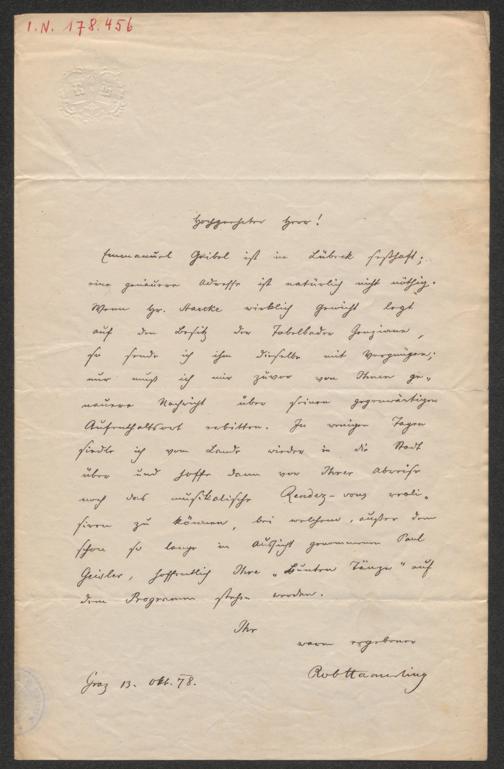 I.N. 178.456
Hochgeehrter Herr!
Emmanuel Geibel ist in Lübeck seßhaft;
eine genauere Adresse ist natürlich nicht nöthig.
Wenn Hr. wirklich Gewicht legt
auf den Besitz der Tobelbader Genziane,
so sende ich ihm dieselbe mit Vergnügen;
nur muß ich mir zuvor von Ihnen ge-
nauere Nachricht über seinen gegenwärtigen
Aufenthaltsort erbitten. In wenigen Tagen
siedle ich vom Lande wieder in die Stadt
über und hoffe dann vor Ihrer Abreise
noch das musikalische Rendez-vous reali-
siren zu können, bei welchem, außer dem
schon so lange in Aussicht genommenen Paul
Geisler, hoffentlich Ihre „Bunten Tänze" auf
dem Programm stehen werden.
Ihr
warm ergebener
Rob Hamerling
Graz 13. Okt. 78.